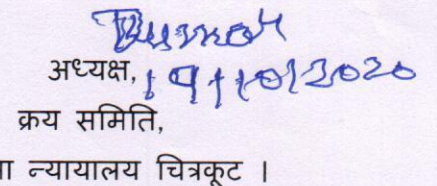 अध्यक्ष,
19/10/2020
क्रय समिति,
न्यायालय चित्रकूट ।